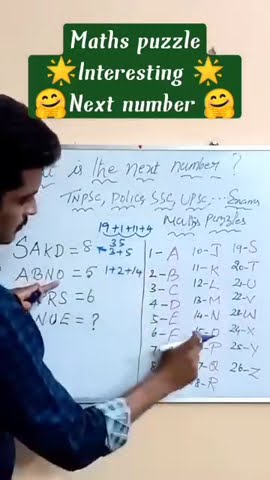 Maths puzzle
🌟Interesting 🌟
🤗Next number 🤗
is the next number ?
TNPSC, Police, SSC, UPSC, ... Exams
Maths puzzles
19+1+11+4
35
3+5
SAKD = 8
ABNO = 5 1+2+14
RS = 6
NUE = ?
1 - A
2 - B
3 - C
4 - D
5 - E
6 - F
10 - J
11 - K
12 - L
13 - M
14 - N
15 - O
P
Q
18 - R
19 - S
20 - T
21 - U
22 - V
23 - W
24 - X
25 - Y
26 - Z